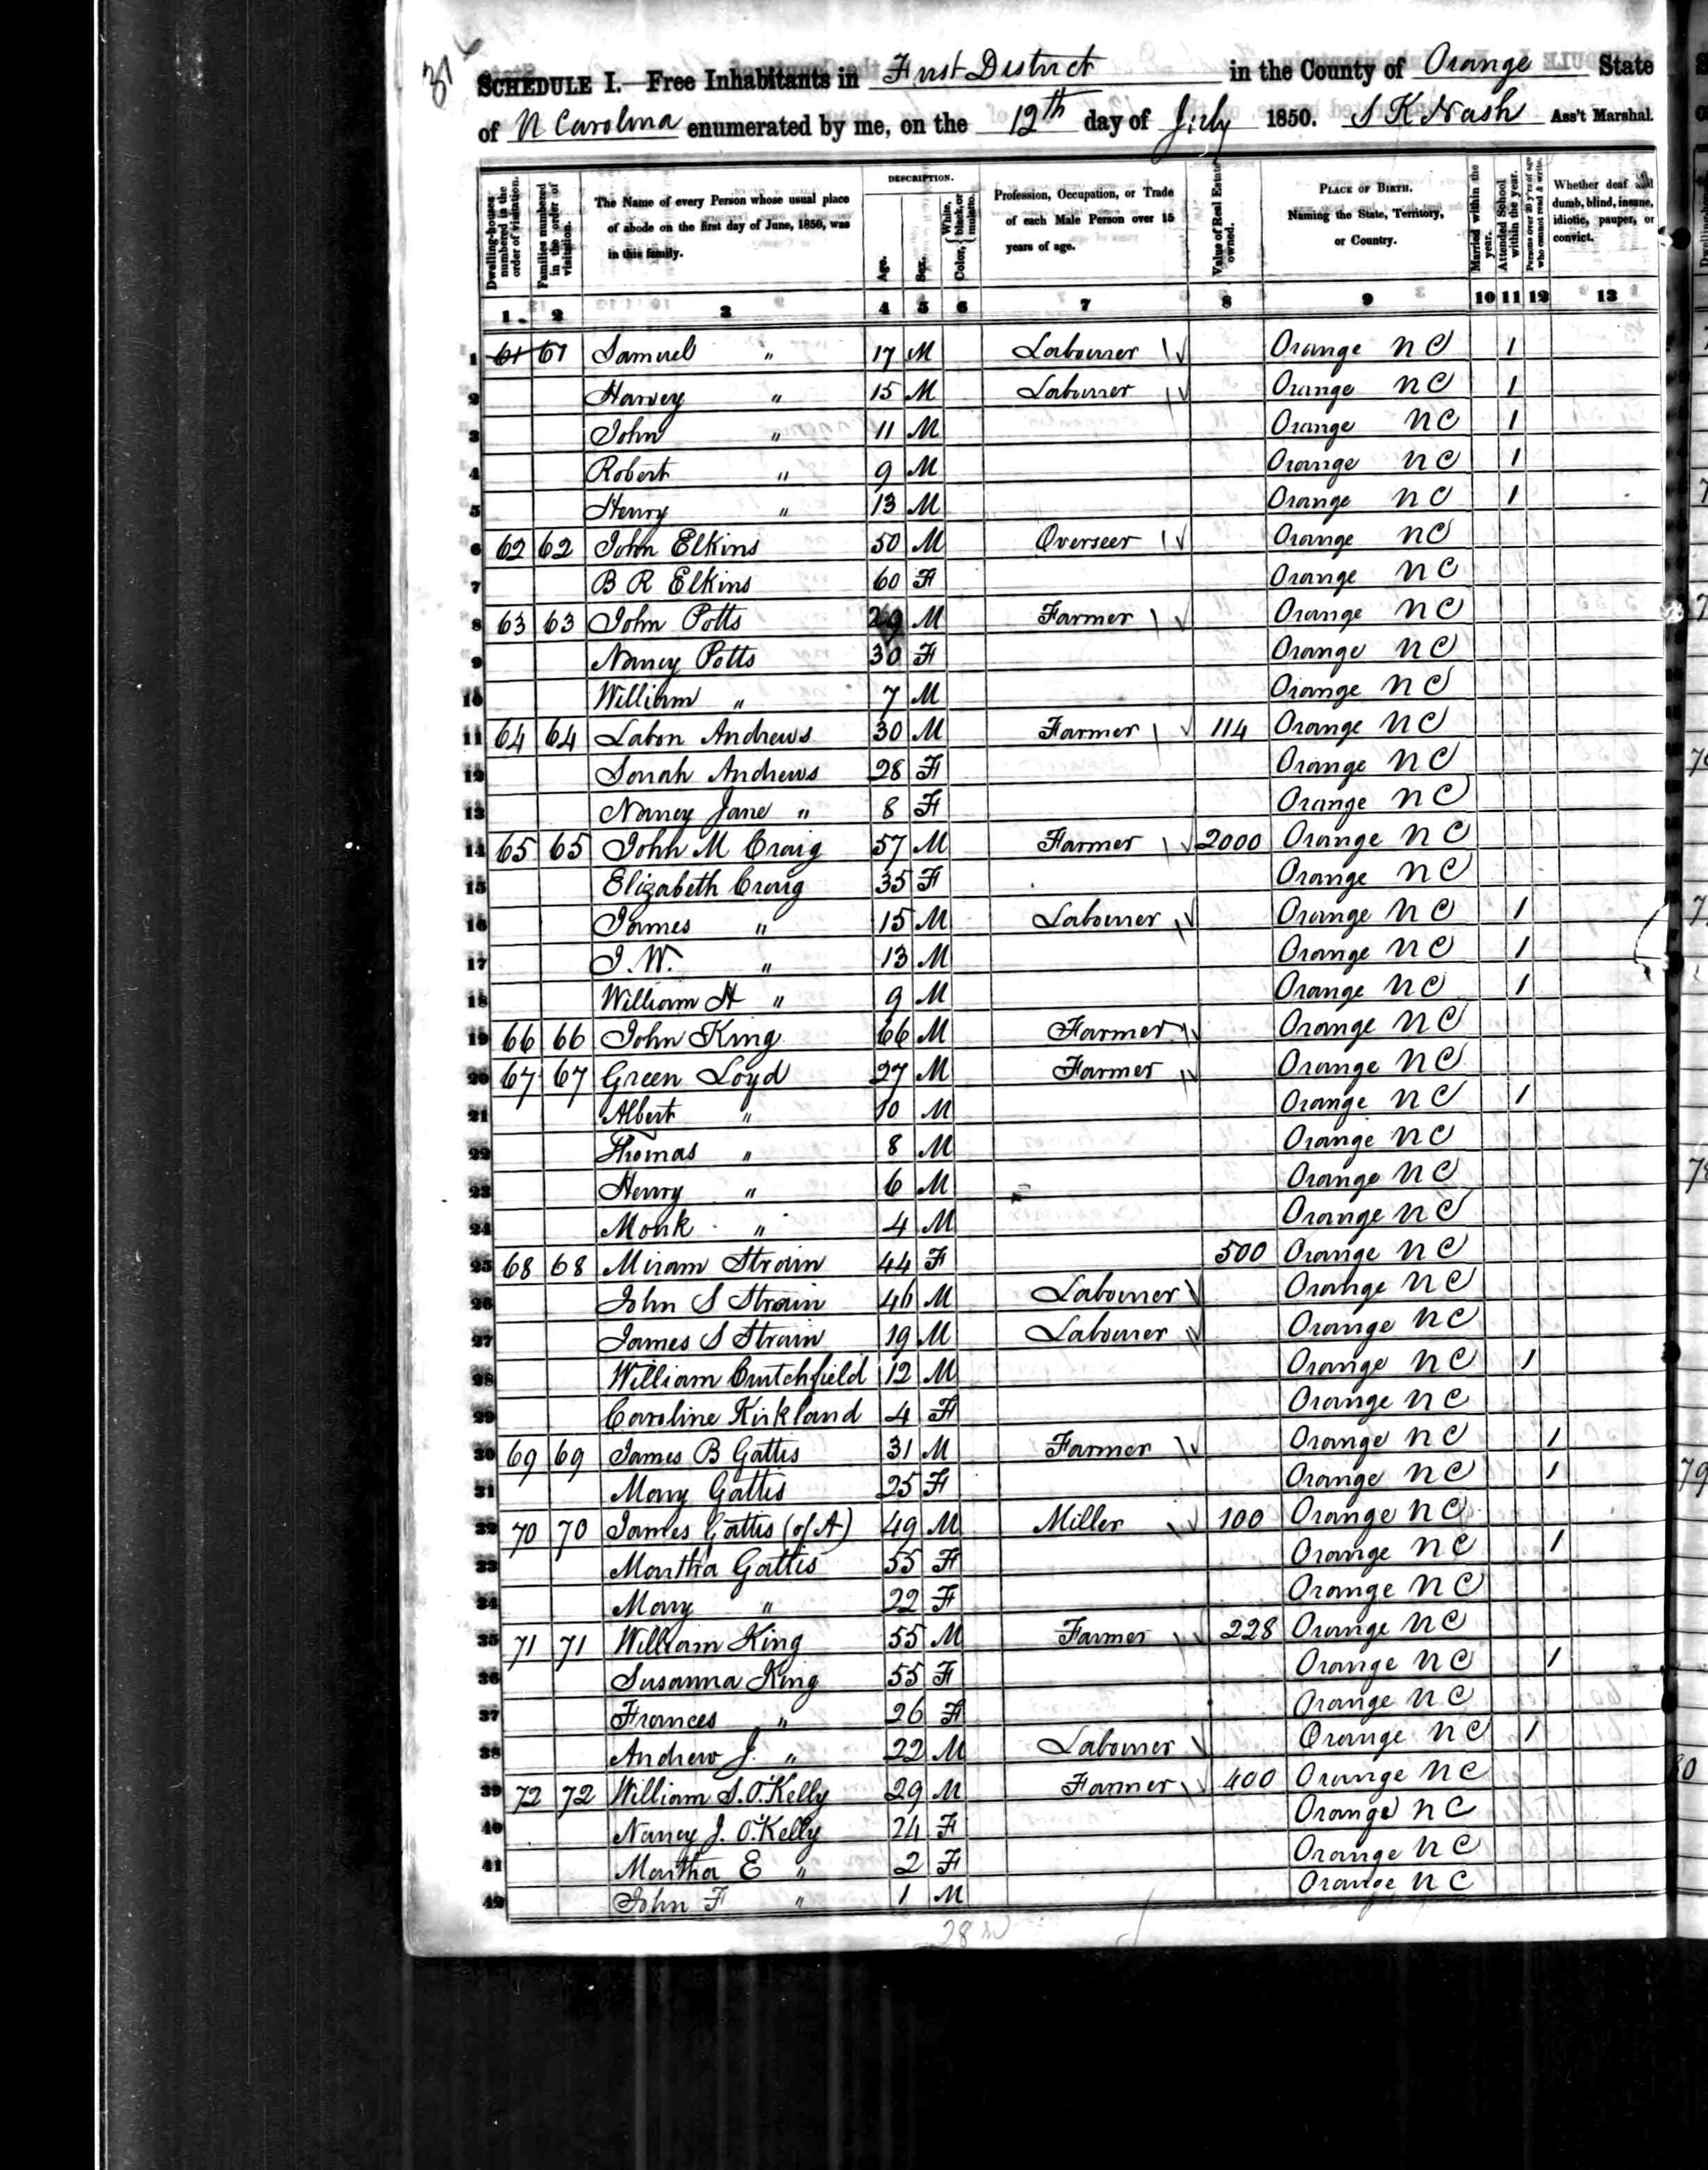 SCHEDULE I.—Free Inhabitants in First District in the County of Orange State
of N Carolina enumerated by me, on the 12th day of July 1850. S K Nash Ass't Marshal.
Dwelling-houses numbered in the order of visitation.
Families numbered in the order of visitation.
The Name of every Person whose usual place of abode on the first day of June, 1850, was in this family.
DESCRIPTION.
Age.
Sex.
Color, { White, black, or mulatto.
Profession, Occupation, or Trade of each Male Person over 15 years of age.
Value of Real Estate owned.
PLACE OF BIRTH. Naming the State, Territory, or Country.
Married within the year.
Attended School within the year.
Persons over 20 y'rs of age who cannot read & write.
Whether deaf and dumb, blind, insane, idiotic, pauper, or convict.
1 2 3 4 5 6 7 8 9 10 11 12 13
1 61 61 Samuel " 17 M Labourer Orange N C 1
2 Harvey " 15 M Labourer Orange N C 1
3 John " 11 M Orange N C 1
4 Robert " 9 M Orange N C 1
5 Henry " 13 M Orange N C 1
6 62 62 John Elkins 50 M Overseer Orange N C
7 B R Elkins 60 F Orange N C
8 63 63 John Potts 29 M Farmer Orange N C
9 Nancy Potts 30 F Orange N C
10 William " 7 M Orange N C
11 64 64 Labon Andrews 30 M Farmer 114 Orange N C
12 Sarah Andrews 28 F Orange N C
13 Nancy Jane " 8 F Orange N C
14 65 65 John M Craig 57 M Farmer 2000 Orange N C
15 Elizabeth Craig 35 F Orange N C
16 James " 15 M Labourer Orange N C 1
17 J. W. " 13 M Orange N C 1
18 William H " 9 M Orange N C 1
19 66 66 John King 66 M Farmer Orange N C
20 67 67 Green Loyd 27 M Farmer Orange N C
21 Albert " 10 M Orange N C 1
22 Thomas " 8 M Orange N C
23 Henry " 6 M Orange N C
24 Monk " 4 M Orange N C
25 68 68 Miriam Strain 44 F 500 Orange N C
26 John S Strain 46 M Labourer Orange N C
27 James S Strain 19 M Labourer Orange N C
28 William Crutchfield 12 M Orange N C 1
29 Caroline Kirkland 4 F Orange N C
30 69 69 James B Gattis 31 M Farmer Orange N C 1
31 Mary Gattis 25 F Orange N C 1
32 70 70 James Gattis (of A) 49 M Miller 100 Orange N C
33 Martha Gattis 55 F Orange N C 1
34 Mary " 22 F Orange N C
35 71 71 William King 55 M Farmer 228 Orange N C
36 Susanna King 55 F Orange N C 1
37 Frances " 26 F Orange N C
38 Andrew J. " 22 M Labourer Orange N C 1
39 72 72 William S. O'Kelly 29 M Farmer 400 Orange N C
40 Nancy J. O'Kelly 24 F Orange N C
41 Martha E " 2 F Orange N C
42 John F " 1 M Orange N C